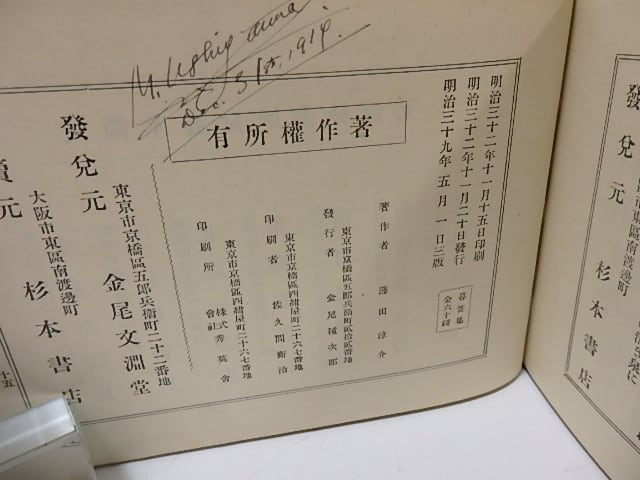 Dec. 31st, 1914.
著作權所有
明治三十二年十一月十五日印刷
明治三十二年十一月二十日發行
明治三十九年五月一日三版
暮笛集
金六十錢
著作者 薄田淳介
東京市京橋區五郎兵衛町貳拾貳番地
發行者 金尾種次郎
東京市京橋區西紺屋町二十六七番地
印刷者 佐久間衡治
東京市京橋區西紺屋町二十六七番地
印刷所 株式會社秀英舍
東京市京橋區五郎兵衛町二十二番地
發兌元 金尾文淵堂
大阪市東區南渡邊町
賣元 杉本書店
十五
發兌元
大阪市東區南渡邊町
杉本書店